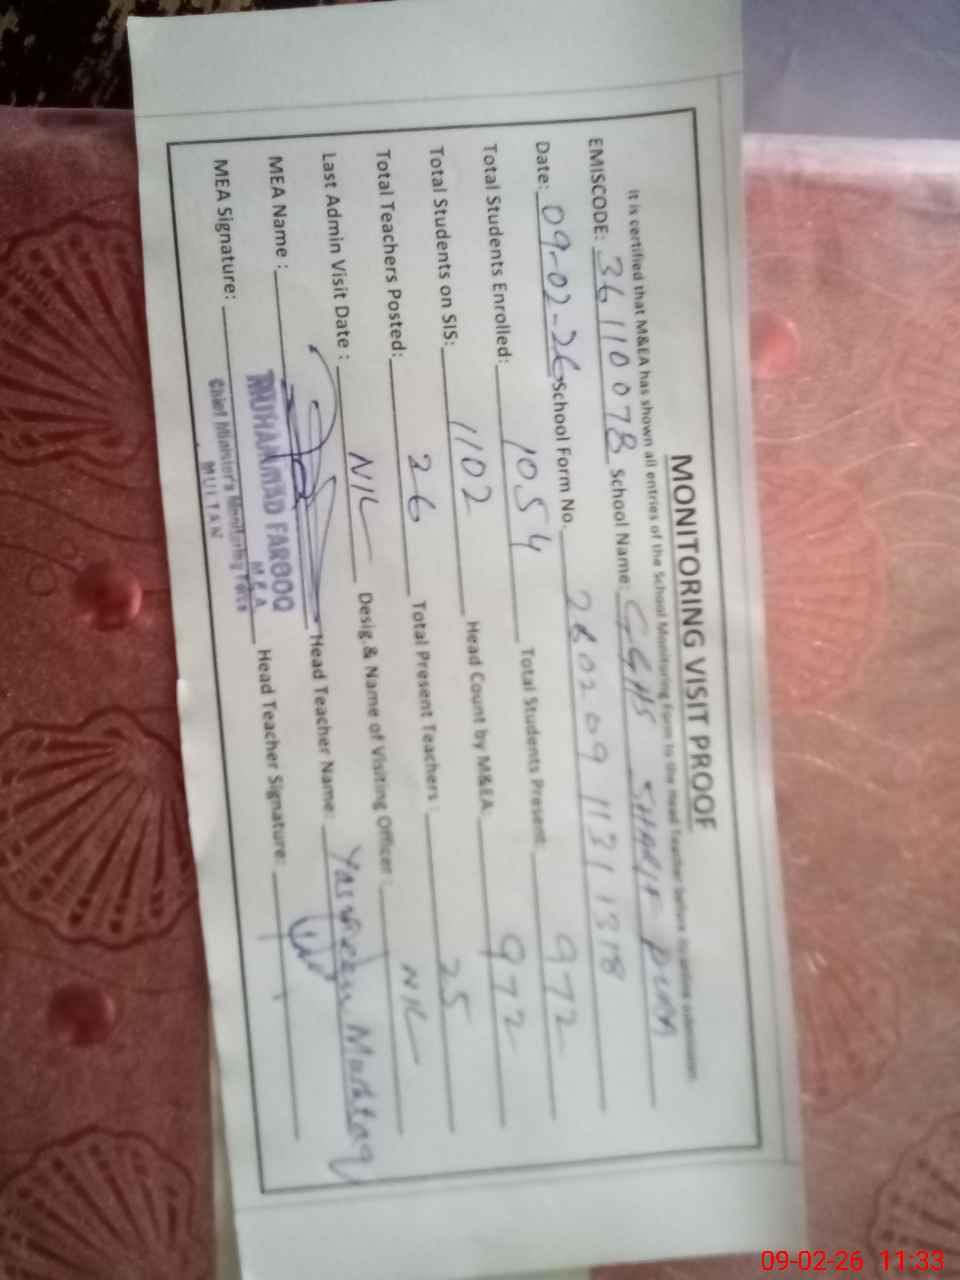 MONITORING VISIT PROOF
It is certified that M&EA has shown all entries of the School Monitoring Form to the Head Teacher before its online submission.
EMISCODE: 36110078 School Name: GGHS SHARIF PURA
Date: 09-02-26 School Form No. 2602091131 1318
Total Students Enrolled: 1054 Total Students Present: 972
Total Students on SIS: 1102 Head Count by M&EA: 972
Total Teachers Posted: 26 Total Present Teachers: 25
Last Admin Visit Date : NIL Desig.& Name of Visiting Officer: NIL
MEA Name : MUHAMMAD FAROOQ Head Teacher Name: Yasmeen Mushtaq
M E A
MEA Signature: Chief Minister's Monitoring Force Head Teacher Signature:
MULTAN
09-02-26 11:33